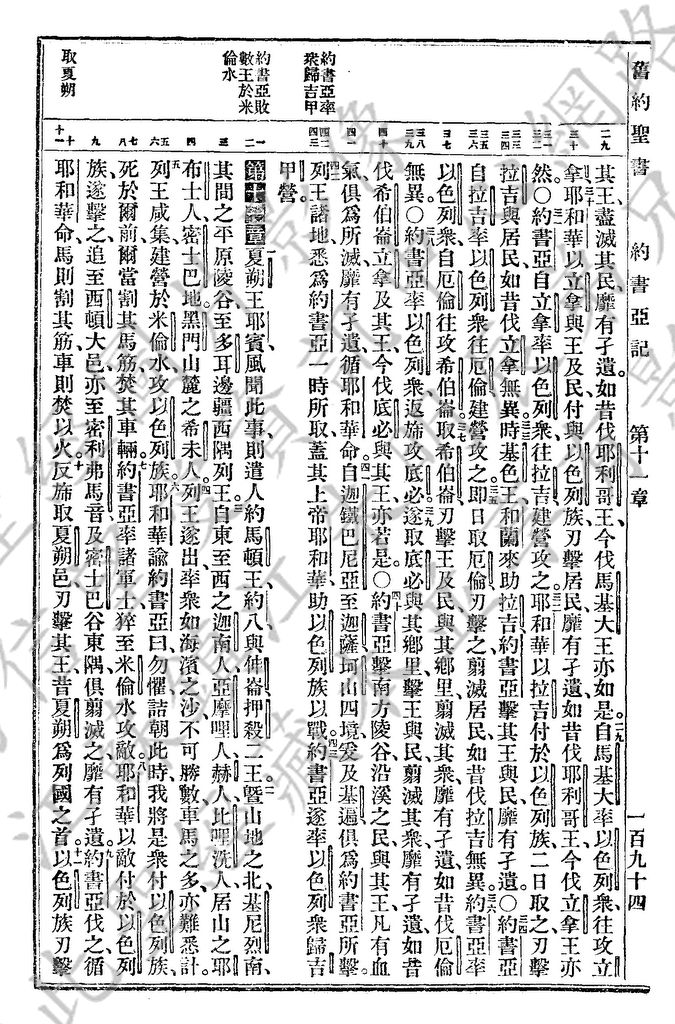 舊約聖書　約書亞記　第十一章　一百九十四
約書亞率
衆歸吉甲
約書亞敗
數王於米
倫水
取夏朔
二九
其王、盡滅其民、靡有孑遺、如昔伐耶利哥王、今伐馬基大王亦如是。自馬基大率以色列衆往攻立
三十
拿、耶和華以立拿與王及民、付與以色列族、刃擊居民、靡有孑遺、如昔伐耶利哥王、今伐立拿王亦
三一 三二
然。○約書亞自立拿率以色列衆往拉吉、建營攻之、耶和華以拉吉付於以色列族、二日取之、刃擊
三三 三四
拉吉與居民、如昔伐立拿無異、時基色王和蘭來助拉吉、約書亞擊其王與民、靡有孑遺。○約書亞
三五 三六
自拉吉率以色列衆往厄倫、建營攻之、卽日取厄倫、刃擊之、翦滅居民、如昔伐拉吉無異、約書亞率
三七
以色列衆、自厄倫往攻希伯崙、取希伯崙、刃擊王及民、與其鄉里、翦滅其衆、靡有孑遺、如昔伐厄倫
三八 三九
無異。○約書亞率以色列衆返斾攻底必、遂取底必與其鄉里、擊王與民、翦滅其衆、靡有孑遺、如昔
四十
伐希伯崙立拿及其王、今伐底必與其王亦若是。○約書亞擊南方陵谷、沿溪之民、與其王、凡有血
四一
氣、俱爲所滅、靡有孑遺、循耶和華命、自迦鐵巴尼亞至迦薩、坷山四境、爰及基遍、俱爲約書亞所擊。
四二 四三
列王諸地、悉爲約書亞一時所取、蓋其上帝耶和華助以色列族以戰、約書亞遂率以色列衆、歸吉
甲營。
一 二
第十一章 夏朔王耶賓風聞此事、則遣人約馬頓王約八、與伸崙押殺二王、曁山地之北、基尼烈南、
三
其間之平原陵谷、至多耳邊疆西隅列王、自東至西之迦南人、亞摩哩人、赫人、比哩洗人、居山之耶
四
布士人、密士巴地黑門山麓之希未人、列王遂出、率衆如海濱之沙、不可勝數、車馬之多、亦難悉計。
五 六
列王咸集、建營於米倫水、攻以色列族、耶和華諭約書亞曰、勿懼、詰朝此時、我將是衆付以色列族、
七 八
死於爾前、爾當割其馬筋、焚其車輛、約書亞率諸軍士、猝至米倫水、攻敵、耶和華以敵付於以色列
九
族、遂擊之、追至西頓大邑、亦至密利弗馬音、及密士巴谷東隅、俱翦滅之、靡有孑遺、約書亞伐之、循
十 十一
耶和華命、馬則割其筋、車則焚以火、反斾取夏朔邑、刃擊其王、昔夏朔爲列國之首、以色列族刃擊